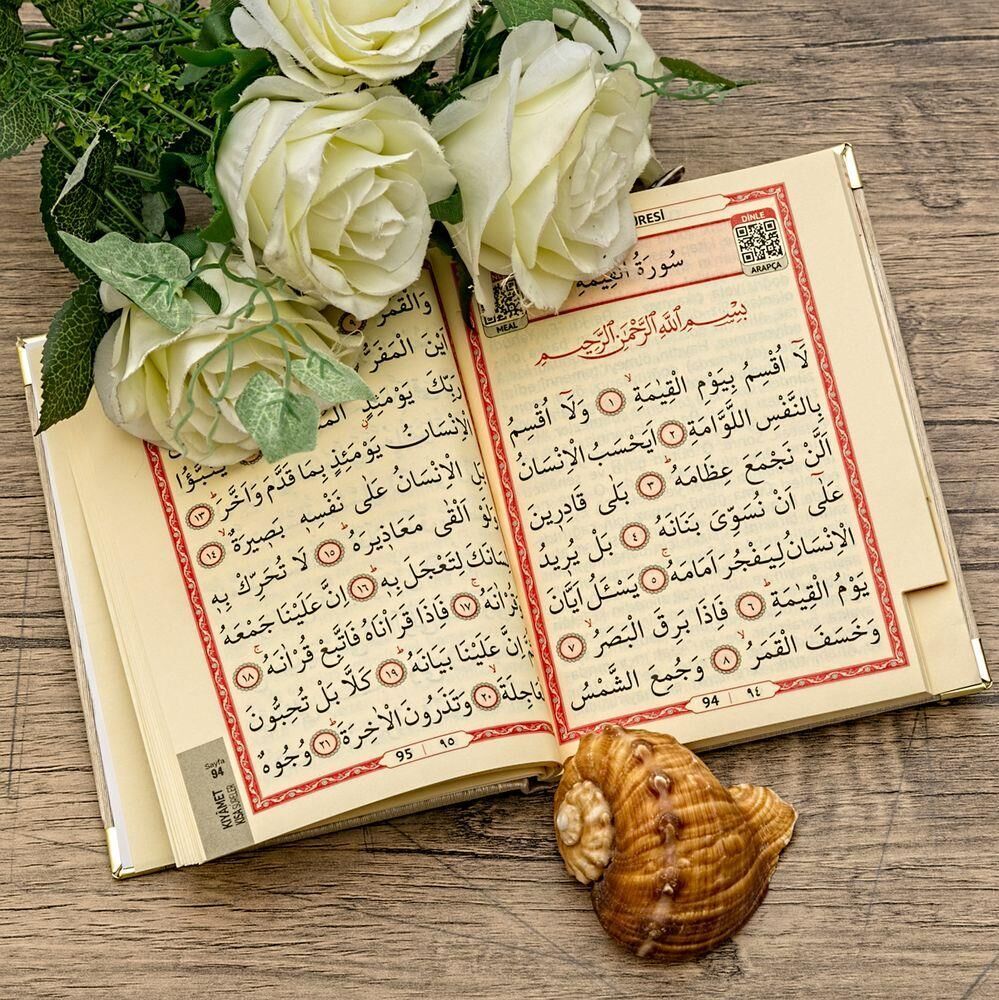 DİNLE
ARAPÇA
سُورَةُ الْقِيٰمَةِ
MEAL
بِسْمِ اللّٰهِ الرَّحْمٰنِ الرَّحِيمِ
لَٓا اُقْسِمُ بِيَوْمِ الْقِيٰمَةِۙ ﴿١﴾ وَلَٓا اُقْسِمُ
بِالنَّفْسِ اللَّوَّامَةِ ﴿٢﴾ اَيَحْسَبُ الْاِنْسَانُ
اَلَّنْ نَجْمَعَ عِظَامَهُۜ ﴿٣﴾ بَلٰى قَادِر۪ينَ
عَلٰٓى اَنْ نُسَوِّيَ بَنَانَهُ ﴿٤﴾ بَلْ يُر۪يدُ
الْاِنْسَانُ لِيَفْجُرَ اَمَامَهُۚ ﴿٥﴾ يَسْـَٔلُ اَيَّانَ
يَوْمُ الْقِيٰمَةِۜ ﴿٦﴾ فَاِذَا بَرِقَ الْبَصَرُۙ ﴿٧﴾
وَخَسَفَ الْقَمَرُۙ ﴿٨﴾ وَجُمِعَ الشَّمْسُ
94 | ٩٤
وَالْقَمَرُ
اَيْنَ الْمَفَرُّ
رَبِّكَ يَوْمَئِذٍ
الْاِنْسَانُ يَوْمَئِذٍ بِمَا قَدَّمَ وَاَخَّرَۜ ﴿١٣﴾
بَلِ الْاِنْسَانُ عَلٰى نَفْسِه۪ بَص۪يرَةٌۙ ﴿١٤﴾
وَلَوْ اَلْقٰى مَعَاذ۪يرَهُۜ ﴿١٥﴾ لَا تُحَرِّكْ بِه۪
لِتَعْجَلَ بِه۪ۜ ﴿١٦﴾ اِنَّ عَلَيْنَا جَمْعَهُ
﴿١٧﴾ فَاِذَا قَرَاْنَاهُ فَاتَّبِعْ قُرْاٰنَهُۚ ﴿١٨﴾
اِنَّ عَلَيْنَا بَيَانَهُۜ ﴿١٩﴾ كَلَّا بَلْ تُحِبُّونَ
﴿٢٠﴾ وَتَذَرُونَ الْاٰخِرَةَۜ ﴿٢١﴾ وُجُوهٌ
95 | ٩٥
Sayfa
94
KIYÂMET
KISA SURELER